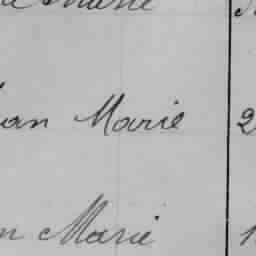 Marie
an Marie 2
n Marie 1